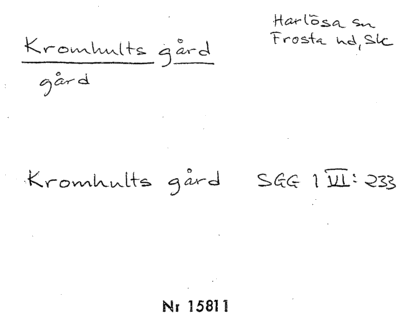 Kromhults gård
gård
Harlösa sn
Frosta hd, Sk
Kromhults gård SGG 1 VI: 233
Nr 15811